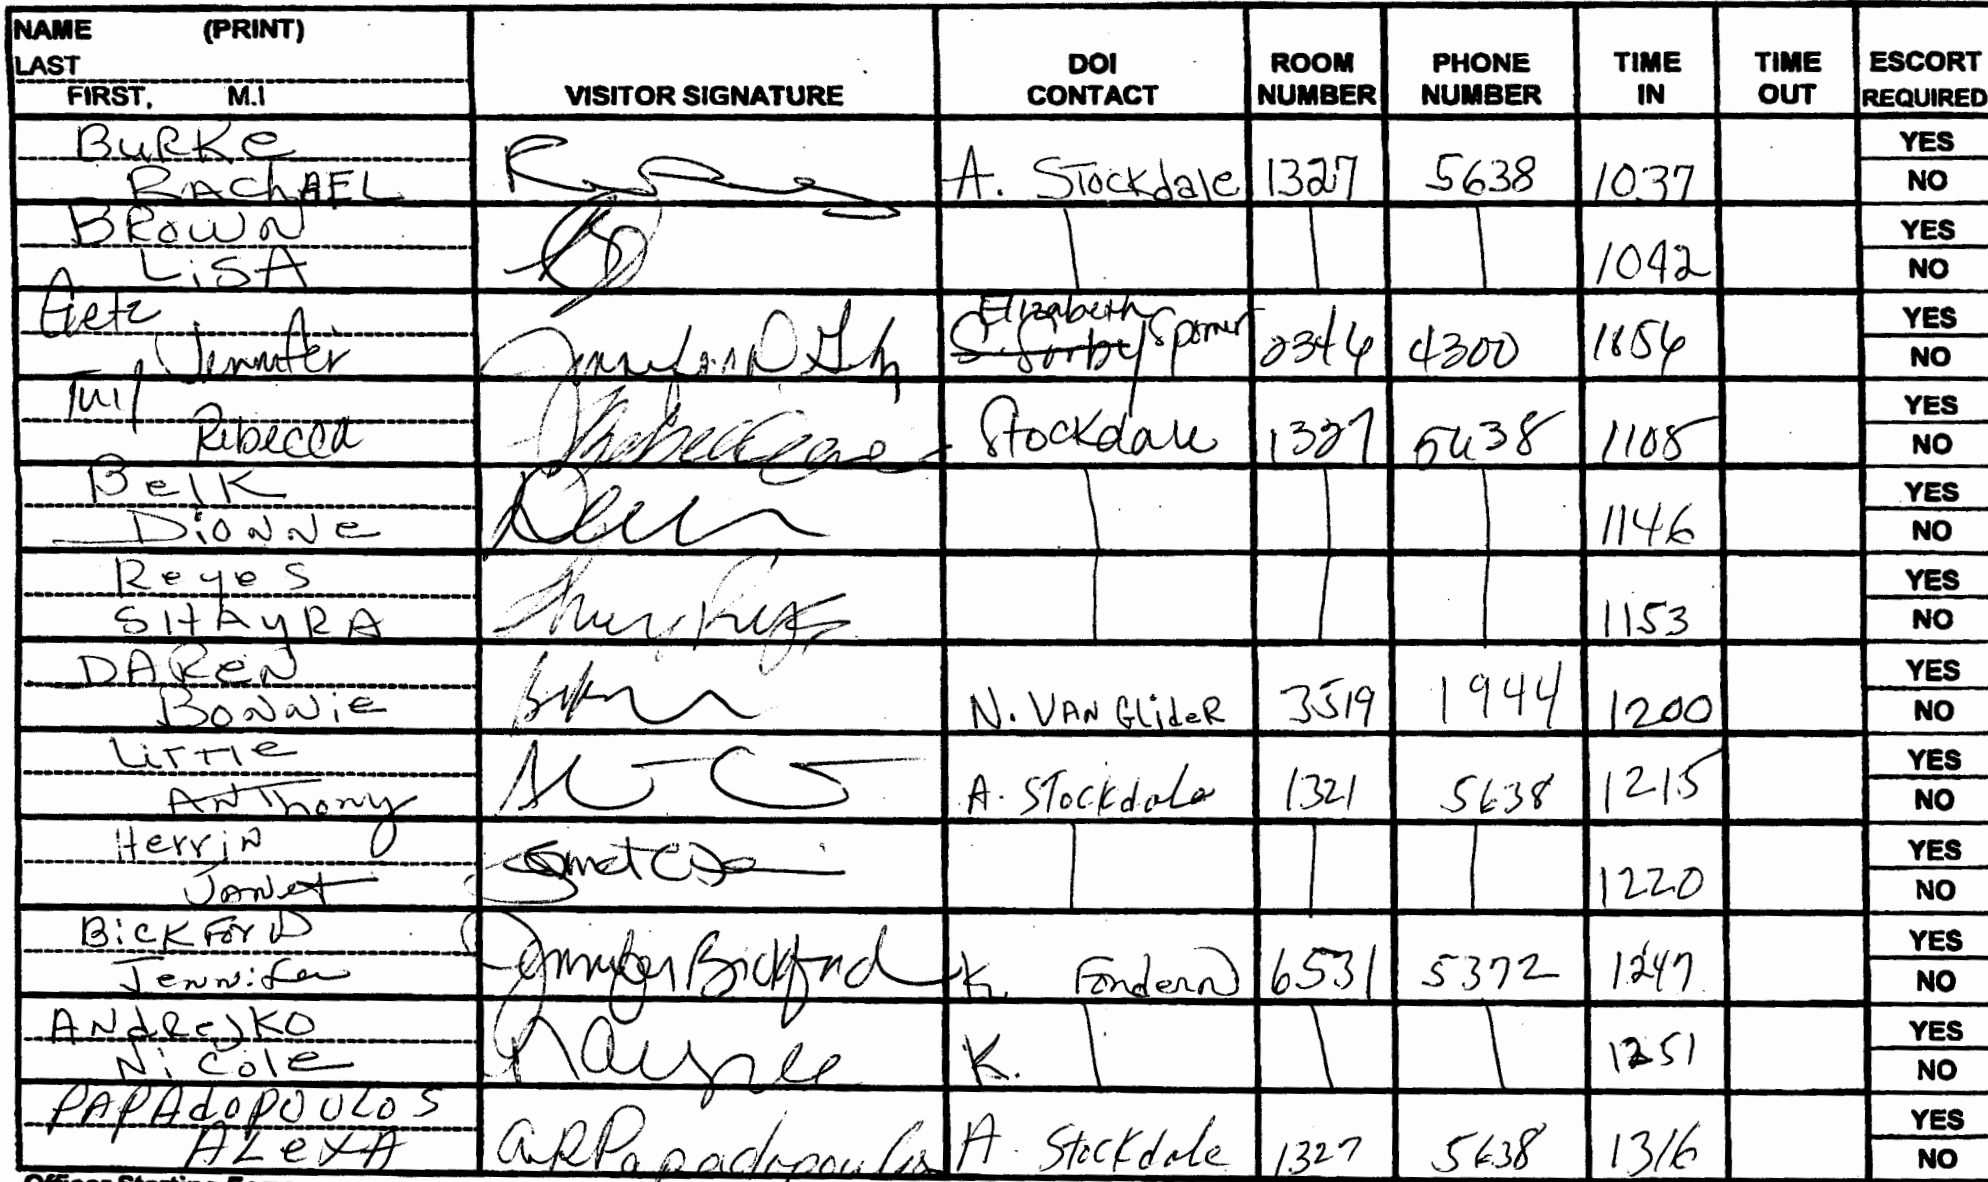 NAME (PRINT)
LAST
FIRST, M.I
VISITOR SIGNATURE
DOI CONTACT
ROOM NUMBER
PHONE NUMBER
TIME IN
TIME OUT
ESCORT REQUIRED
BURKe
RAChAEL
A. Stockdale 1327 5638 1037
YES
NO
BROWN
LiSA
1042
YES
NO
Getz
Jennifer
Elizabeth
S. Sorby
4300
YES
NO
Rebecca
Stockdale 1327 5638 1108
YES
NO
BelK
DioNNe
1146
YES
NO
Reyes
SHAyRA
1153
YES
NO
DAReN
BoNNie
N. VAN GlideR 3519 1944 1200
YES
NO
LiTTle
ANThony
A. Stockdale 1321 5638 1215
YES
NO
HerriN
JANet
1220
YES
NO
BiCKForD
JeNNifer
Jennifer Bickford
K. Fondern 6531 5372 1247
YES
NO
ANdRejKO
Nicole
K.
1251
YES
NO
PAPAdOPOULOS
ALeXA
ARPapadopoulos
A. Stockdale 1327 5638 1316
YES
NO